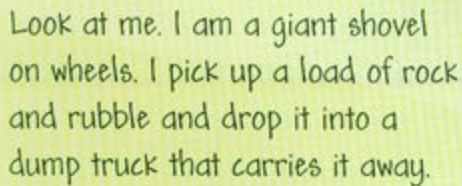 Look at me. I am a giant shovel
on wheels. I pick up a load of rock
and rubble and drop it into a
dump truck that carries it away.